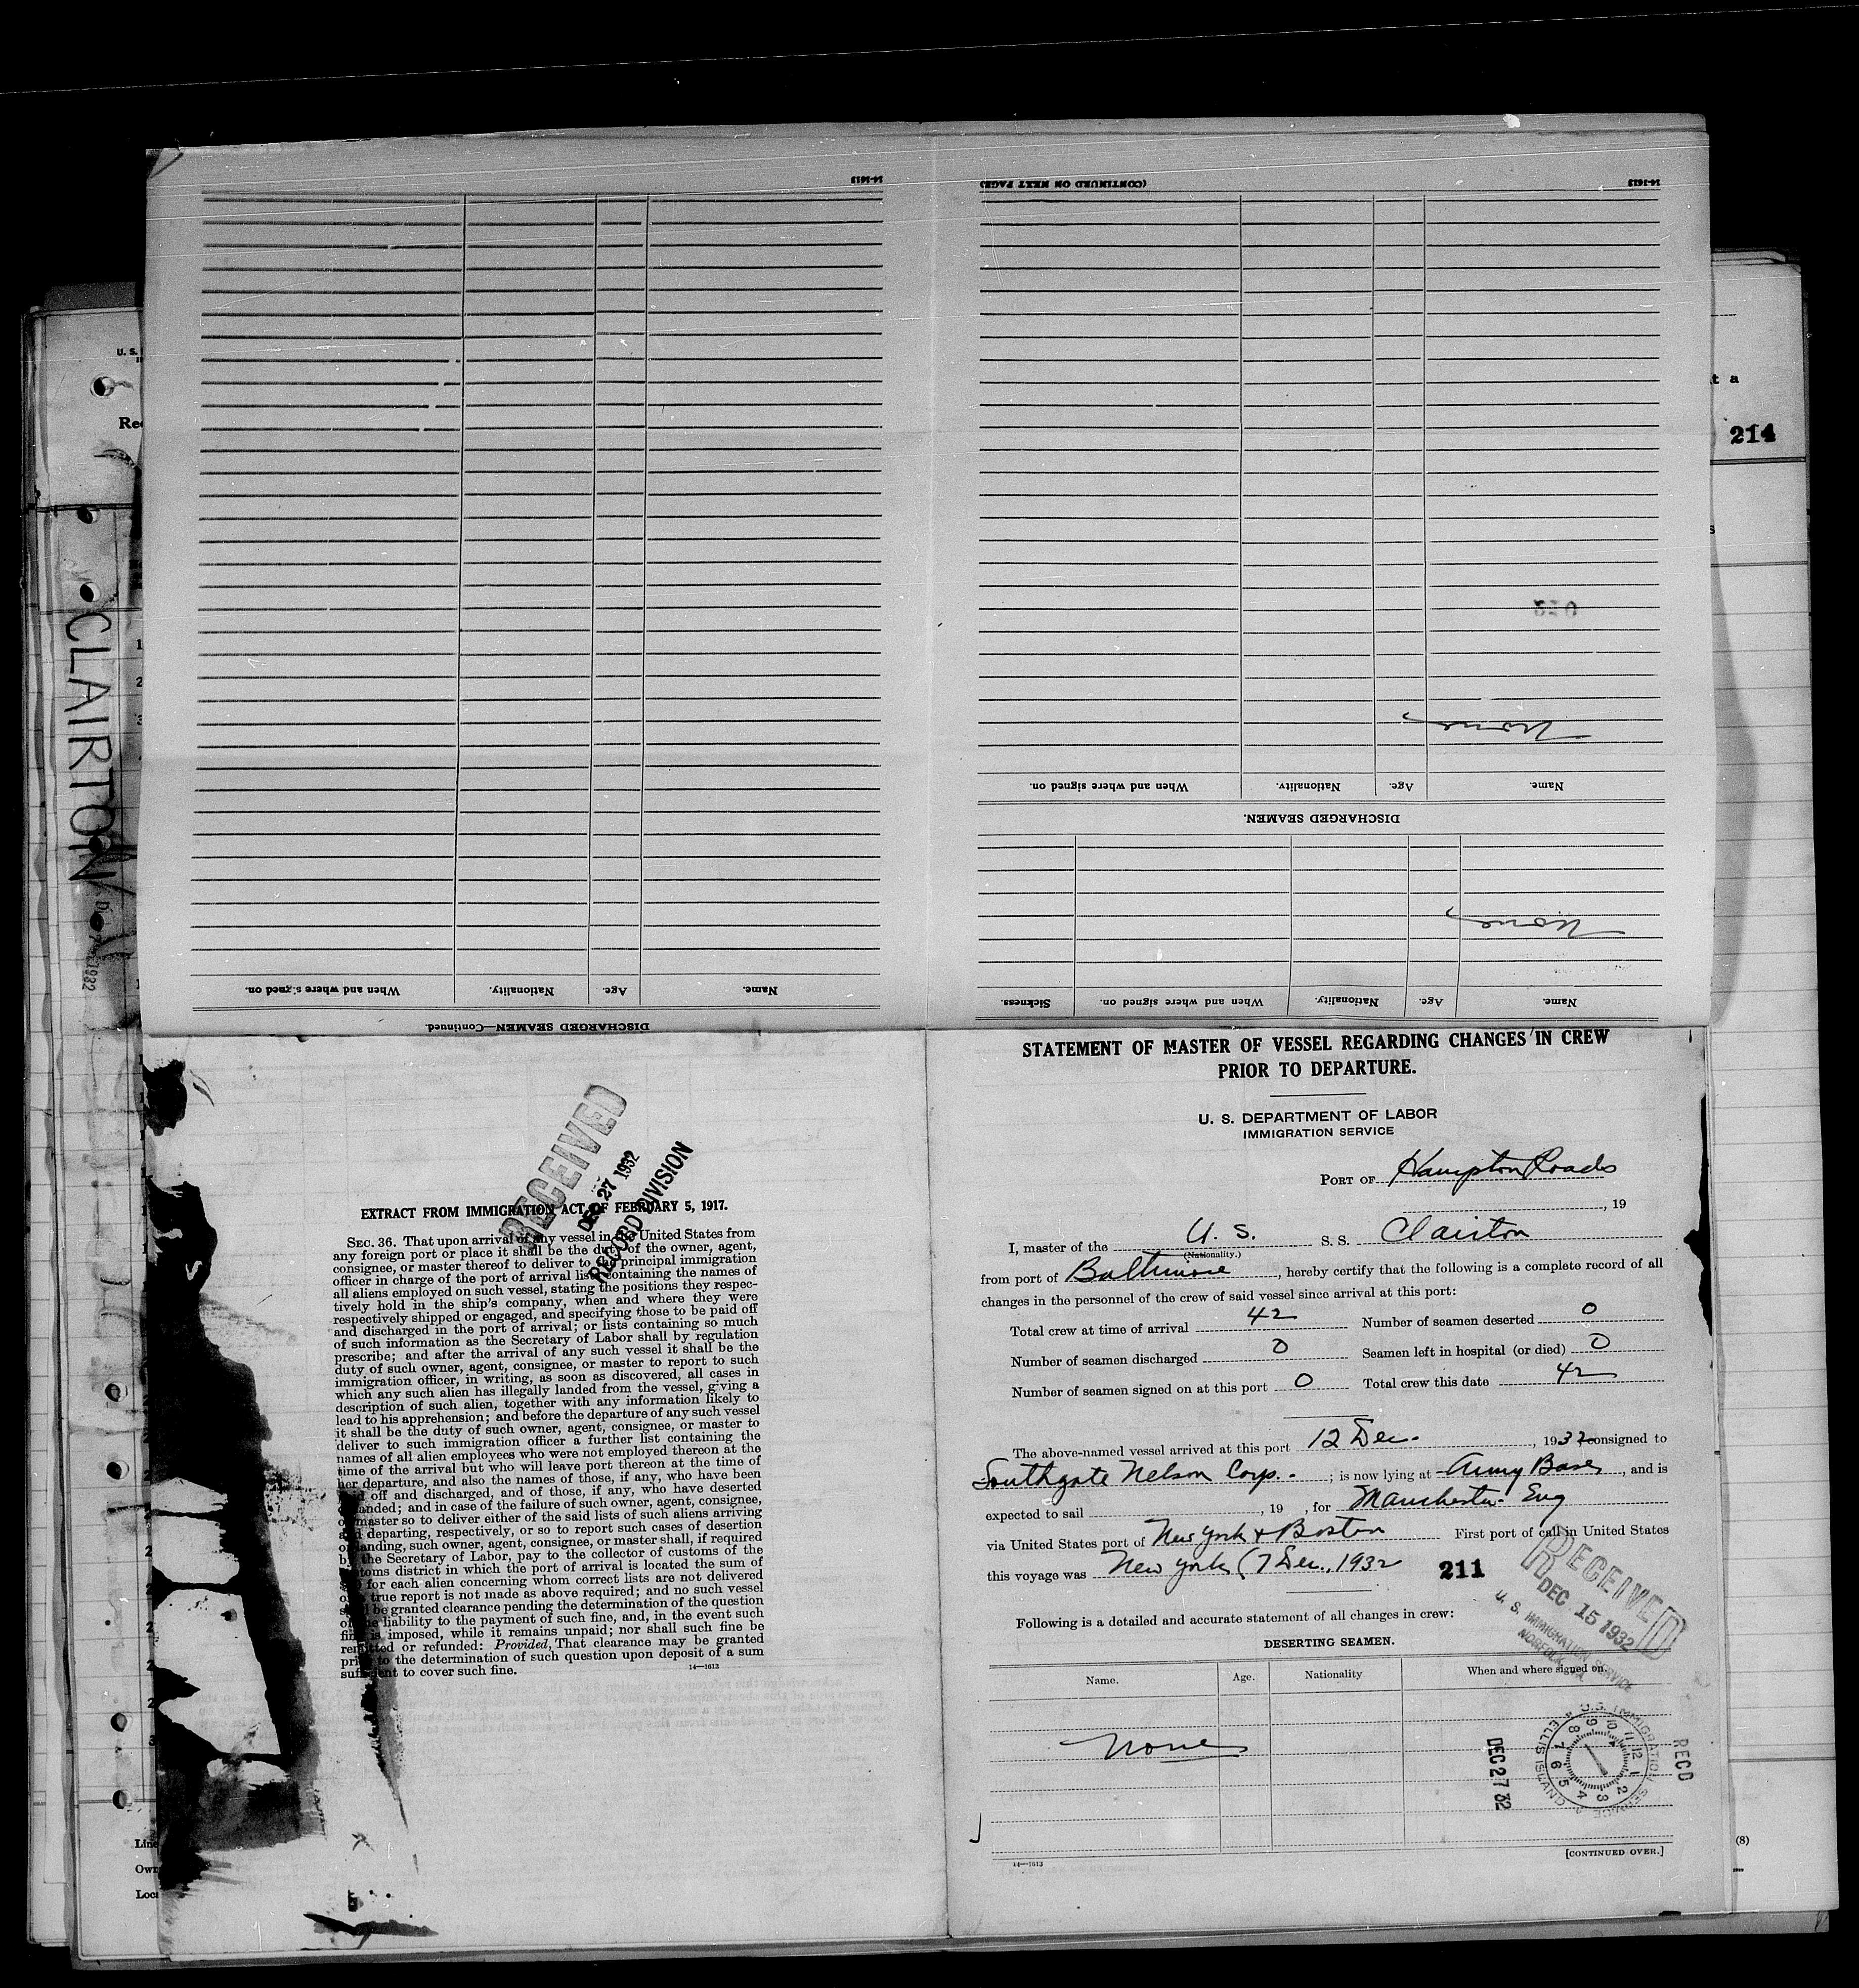 14-1613
(CONTINUED ON NEXT PAGE)
14-1613
None
When and where signed on.
Nationality.
Age.
Name.
DISCHARGED SEAMEN.
None
When and where signed on.
Nationality.
Age.
Name.
Sickness.
When and where signed on.
Nationality.
Age.
Name.
DISCHARGED SEAMEN—Continued.
U. S.
t a
214
CLAIRTON
1932
STATEMENT OF MASTER OF VESSEL REGARDING CHANGES IN CREW
PRIOR TO DEPARTURE.
U. S. DEPARTMENT OF LABOR
IMMIGRATION SERVICE
PORT OF Hampton Roads
, 19
I, master of the U. S. S. S. Clairton
(Nationality.)
from port of Baltimore, hereby certify that the following is a complete record of all
changes in the personnel of the crew of said vessel since arrival at this port:
Total crew at time of arrival 42 Number of seamen deserted 0
Number of seamen discharged 0 Seamen left in hospital (or died) 0
Number of seamen signed on at this port 0 Total crew this date 42
The above-named vessel arrived at this port 12 Dec., 1932 consigned to
Southgate Nelson Corp.; is now lying at Army Base, and is
expected to sail , 19 , for Manchester Eng
via United States port of New York & Boston First port of call in United States
this voyage was New York (7 Dec., 1932
211
RECEIVED
DEC 15 1932
U. S. IMMIGRATION SERVICE
NORFOLK, VA.
Following is a detailed and accurate statement of all changes in crew:
DESERTING SEAMEN.
Name. Age. Nationality When and where signed on.
None
RECD
U. S. IMMIGRATION SERVICE
ELLIS ISLAND
DEC 27 32
[CONTINUED OVER.]
14—1613
(8)
RECEIVED
DEC 27 1932
RECORD DIVISION
EXTRACT FROM IMMIGRATION ACT OF FEBRUARY 5, 1917.
SEC. 36. That upon arrival of any vessel in the United States from
any foreign port or place it shall be the duty of the owner, agent,
consignee, or master thereof to deliver to the principal immigration
officer in charge of the port of arrival lists containing the names of
all aliens employed on such vessel, stating the positions they respec-
tively hold in the ship's company, when and where they were
respectively shipped or engaged, and specifying those to be paid off
and discharged in the port of arrival; or lists containing so much
of such information as the Secretary of Labor shall by regulation
prescribe; and after the arrival of any such vessel it shall be the
duty of such owner, agent, consignee, or master to report to such
immigration officer, in writing, as soon as discovered, all cases in
which any such alien has illegally landed from the vessel, giving a
description of such alien, together with any information likely to
lead to his apprehension; and before the departure of any such vessel
it shall be the duty of such owner, agent, consignee, or master to
deliver to such immigration officer a further list containing the
names of all alien employees who were not employed thereon at the
time of the arrival but who will leave port thereon at the time of
her departure, and also the names of those, if any, who have been
paid off and discharged, and of those, if any, who have deserted
or landed; and in case of the failure of such owner, agent, consignee,
or master so to deliver either of the said lists of such aliens arriving
and departing, respectively, or so to report such cases of desertion
or landing, such owner, agent, consignee, or master shall, if required
by the Secretary of Labor, pay to the collector of customs of the
customs district in which the port of arrival is located the sum of
for each alien concerning whom correct lists are not delivered
or a true report is not made as above required; and no such vessel
shall be granted clearance pending the determination of the question
of the liability to the payment of such fine, and, in the event such
fine is imposed, while it remains unpaid; nor shall such fine be
remitted or refunded: Provided, That clearance may be granted
prior to the determination of such question upon deposit of a sum
sufficient to cover such fine.
14—1613